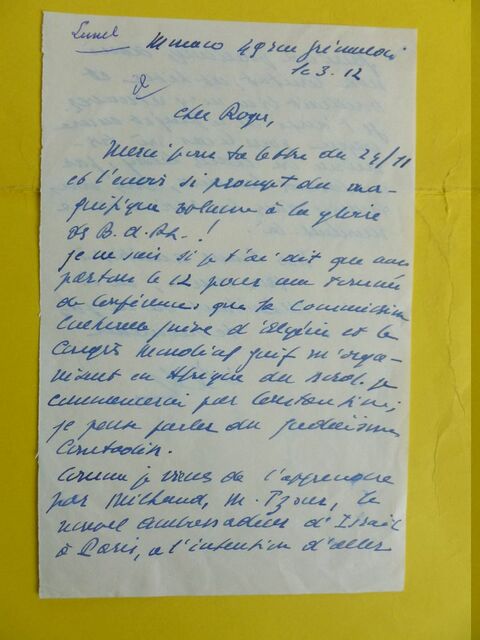 Lunel
Monaco 49 rue Grimaldi
le 3. 12
Cher Roger,
Merci pour ta lettre du 29/11
et l'envoi si prompt du ma-
gnifique volume à la gloire
des B. d. Rh. !
Je ne sais si je t'ai dit que nous
partons le 12 pour une tournée
de Conférences que la Commission
Culturelle juive d'Algérie et le
Congrès mondial juif m'orga-
nisent en Afrique du Nord. Je
commencerai par Constantine,
je pense parler du judaïsme
Comtadin.
Comme je viens de l'apprendre
par Milhaud, M. Tzour, le
nouvel ambassadeur d'Israël
à Paris, a l'intention d'aller